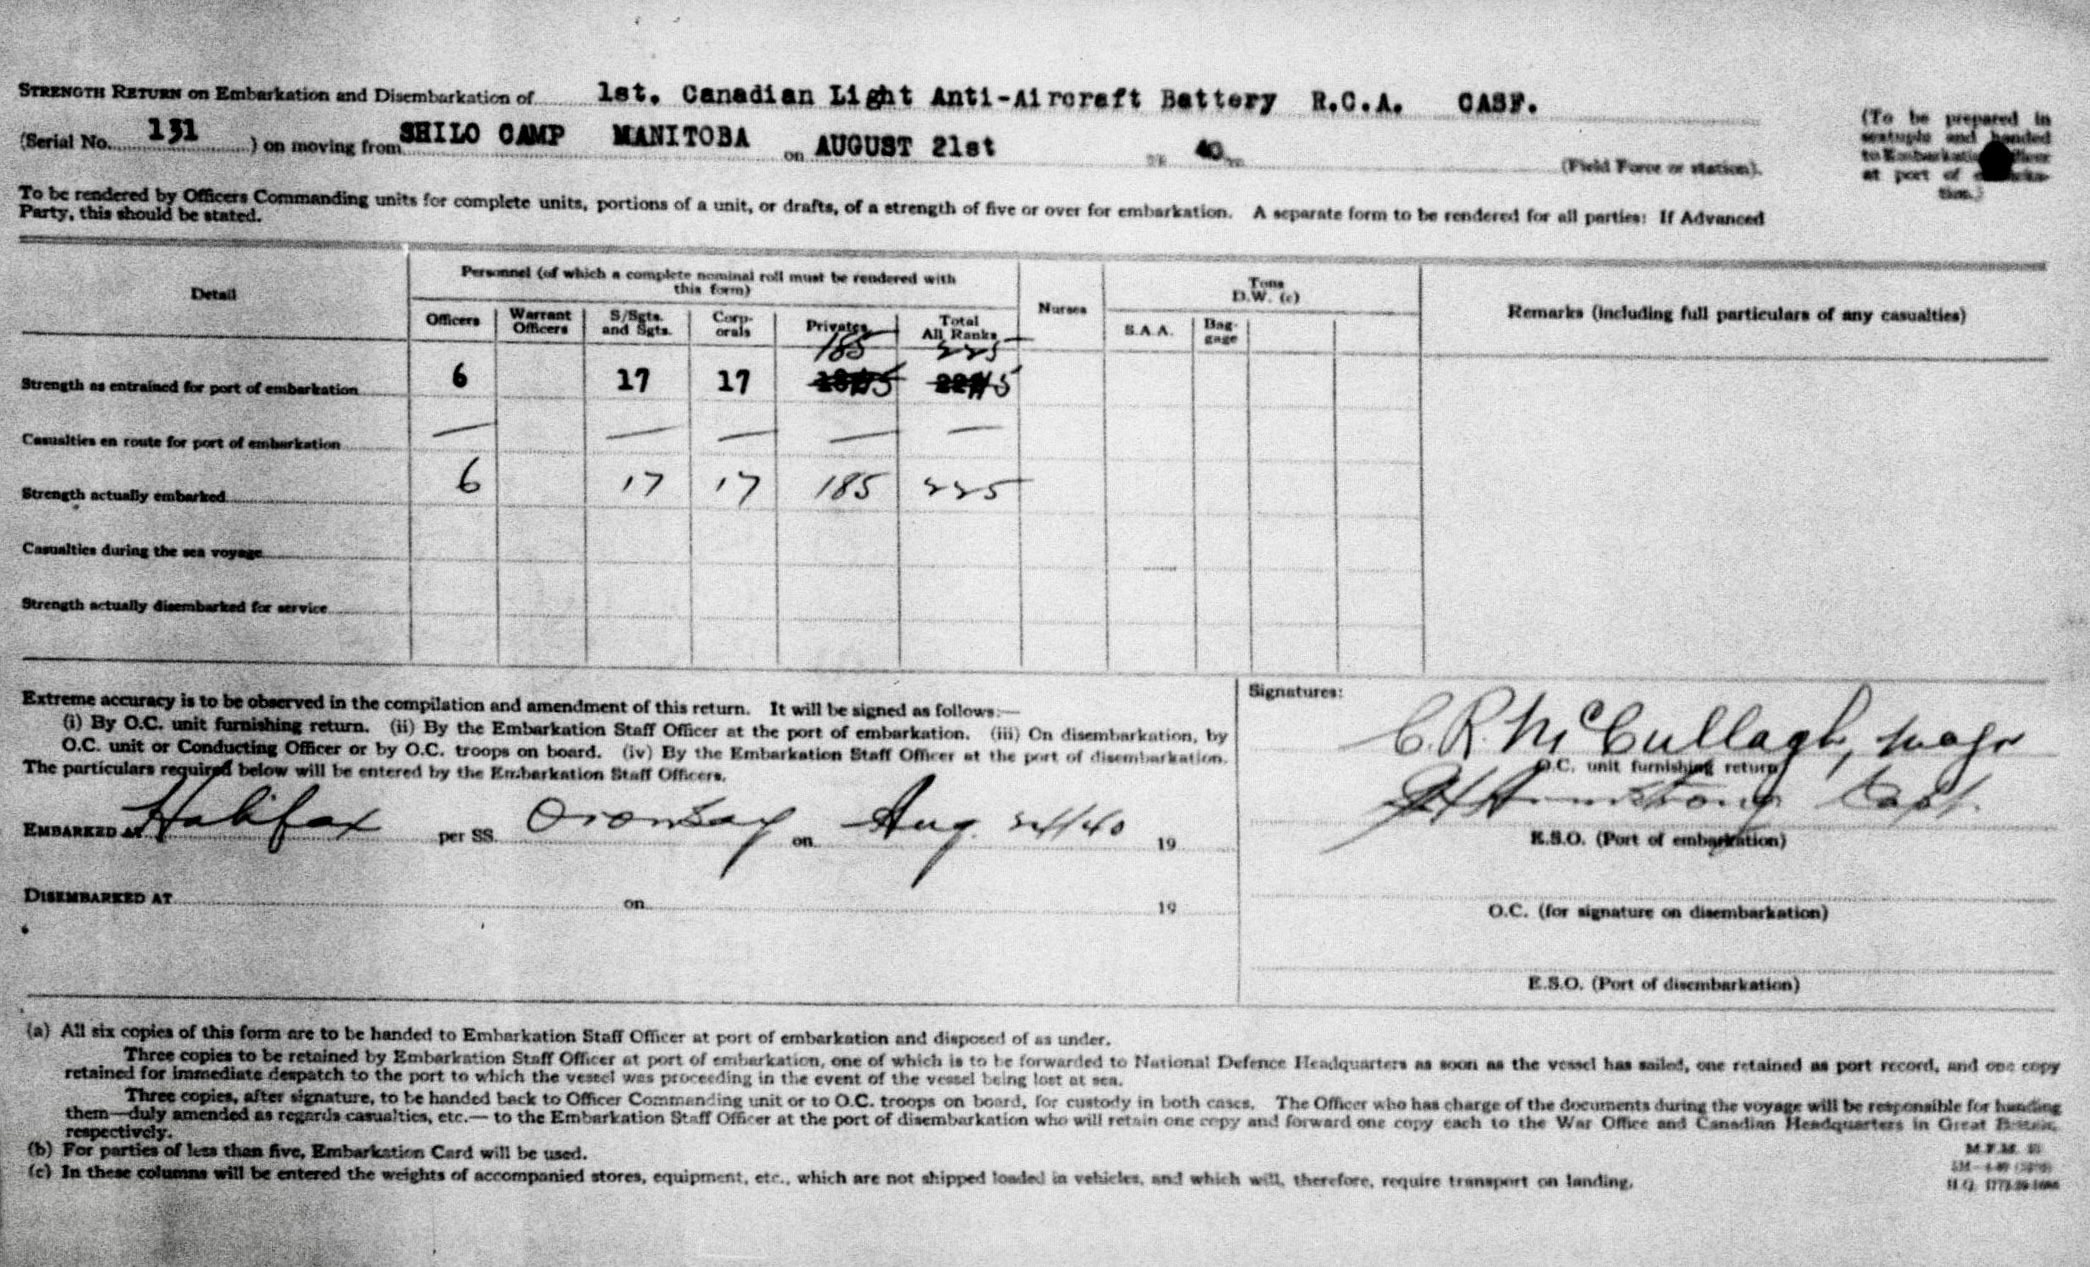 STRENGTH RETURN on Embarkation and Disembarkation of 1st. Canadian Light Anti-Aircraft Battery R.C.A. CASF.
(Serial No. 131 ) on moving from SHILO CAMP MANITOBA on AUGUST 21st 40 (Field Force or station).
(To be prepared in
sextuple and handed
to Embarkation Officer
at port of
tion.)
To be rendered by Officers Commanding units for complete units, portions of a unit, or drafts, of a strength of five or over for embarkation. A separate form to be rendered for all parties: If Advanced
Party, this should be stated.
Detail
Personnel (of which a complete nominal roll must be rendered with
this form)
Nurses
Tons
D.W. (c)
Remarks (including full particulars of any casualties)
Officers Warrant Officers S/Sgts. and Sgts. Corp-orals Privates Total All Ranks S.A.A. Bag-gage
185 225
Strength as entrained for port of embarkation 6 17 17
Casualties en route for port of embarkation — — — — —
Strength actually embarked 6 17 17 185 225
Casualties during the sea voyage
Strength actually disembarked for service
Extreme accuracy is to be observed in the compilation and amendment of this return. It will be signed as follows:—
(i) By O.C. unit furnishing return. (ii) By the Embarkation Staff Officer at the port of embarkation. (iii) On disembarkation, by
O.C. unit or Conducting Officer or by O.C. troops on board. (iv) By the Embarkation Staff Officer at the port of disembarkation.
The particulars required below will be entered by the Embarkation Staff Officers.
EMBARKED AT Halifax per SS. Oronsay on Aug 24/40 19
DISEMBARKED AT on 19
Signatures:
C.R. McCullagh, Major
O.C. unit furnishing return
Armstrong Capt.
E.S.O. (Port of embarkation)
O.C. (for signature on disembarkation)
E.S.O. (Port of disembarkation)
(a) All six copies of this form are to be handed to Embarkation Staff Officer at port of embarkation and disposed of as under.
Three copies to be retained by Embarkation Staff Officer at port of embarkation, one of which is to be forwarded to National Defence Headquarters as soon as the vessel has sailed, one retained as port record, and one copy
retained for immediate despatch to the port to which the vessel was proceeding in the event of the vessel being lost at sea.
Three copies, after signature, to be handed back to Officer Commanding unit or to O.C. troops on board, for custody in both cases. The Officer who has charge of the documents during the voyage will be responsible for handing
them—duly amended as regards casualties, etc.— to the Embarkation Staff Officer at the port of disembarkation who will retain one copy and forward one copy each to the War Office and Canadian Headquarters in Great Britain,
respectively.
(b) For parties of less than five, Embarkation Card will be used.
(c) In these columns will be entered the weights of accompanied stores, equipment, etc., which are not shipped loaded in vehicles, and which will, therefore, require transport on landing.
M.F.M.
H.Q.